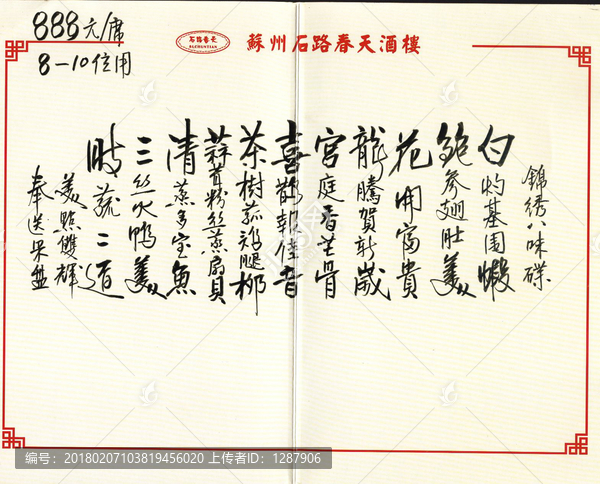 888元/席
8-10位用
石路春天
SHILUCHUNTIAN
蘇州石路春天酒樓
錦绣八味碟
白灼基围蝦
鲍参翅肚羹
花開富貴
龍騰賀新歲
宫庭香芒骨
喜鹊報佳音
茶樹菰鸡腿柳
蒜茸粉丝蒸扇貝
清蒸多宝魚
三丝火鴨羹
時蔬二道
美點雙輝
奉送果盘
编号：20180207103819456020 上传者ID：1287906